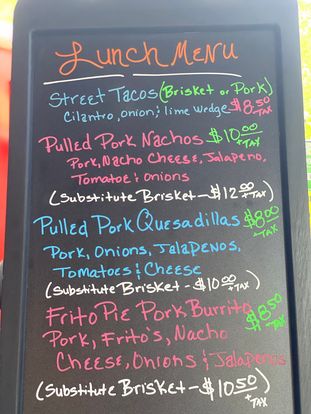 Lunch Menu
Street Tacos (Brisket or Pork) $8.50 + TAX
Cilantro, onion, & lime wedge
Pulled Pork Nachos $10.00 + TAX
Pork, Nacho Cheese, Jalapeno,
Tomatoe & Onions
(Substitute Brisket - $12.00 + TAX)
Pulled Pork Quesadillas $8.00 + TAX
Pork, Onions, Jalapenos,
Tomatoes & Cheese
(Substitute Brisket - $10.00 + TAX)
Frito Pie Pork Burrito $8.50 + TAX
Pork, Frito's, Nacho
Cheese, Onions & Jalapenos
(Substitute Brisket - $10.50 + TAX)